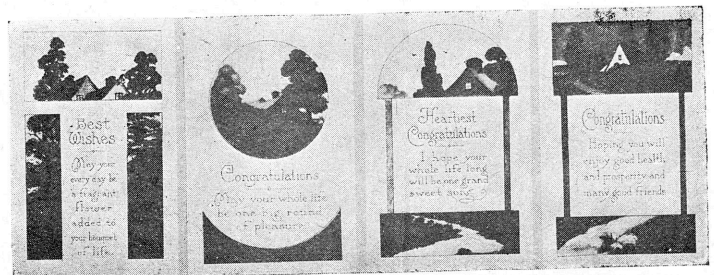 Best
Wishes
May your
every day be
a fragrant
flower
added to
your bouquet
of life.
Congratulations
May your whole life
be one big round
of pleasure
Heartiest
Congratulations
I hope your
whole life long
will be one grand
sweet song
Congratulations
Hoping you will
enjoy good health,
and prosperity and
many good friends